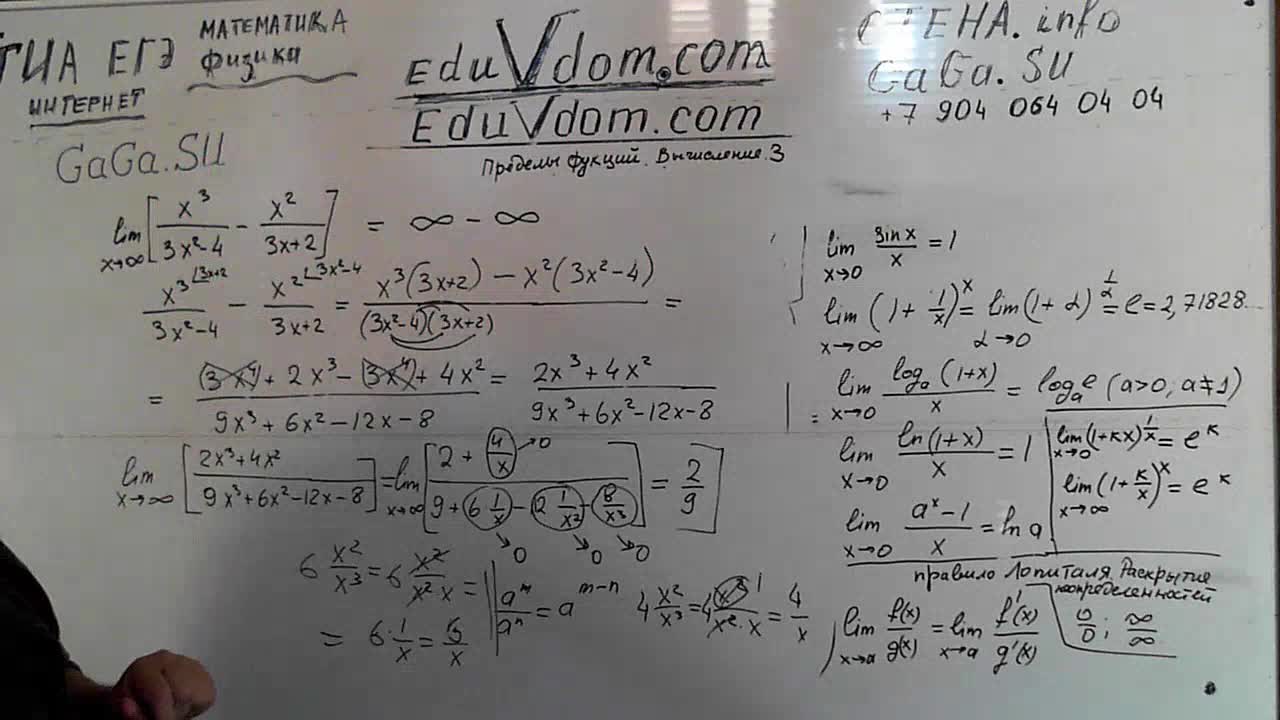 ГИА ЕГЭ МАТЕМАТИКА
физика
ИНТЕРНЕТ
GaGa.SU
EduVdom.com
EduVdom.com
Пределы фукций. Вычисление.3
СТЕНА.info
GaGa.SU
+7 904 064 04 04
lim x→∞ [x³/(3x²-4) - x²/(3x+2)] = ∞ - ∞
x³⌊3x+2/(3x²-4) - x²⌊3x²-4/(3x+2) = (x³(3x+2) - x²(3x²-4))/((3x²-4)(3x+2)) =
= (3x⁴ + 2x³ - 3x⁴ + 4x²)/(9x³ + 6x² - 12x - 8) = (2x³ + 4x²)/(9x³ + 6x² - 12x - 8)
lim x→∞ [(2x³ + 4x²)/(9x³ + 6x² - 12x - 8)] = lim x→∞ [(2 + 4/x →0)/(9 + 6 1/x - 12 1/x² - 8/x³)] = 2/9
→0 →0 →0
6 x²/x³ = 6 x²/(x² x) = || aᵐ/aⁿ = a^(m-n) 4 x²/x³ = 4 x² 1/(x²·x) = 4/x
= 6·1/x = 6/x
lim x→0 sin x/x = 1
lim x→∞ (1 + 1/x)^x = lim α→0 (1 + α)^(1/α) = e = 2,71828
lim x→0 logₐ(1+x)/x = logₐe (a>0, a≠1)
lim x→0 ln(1+x)/x = 1
lim x→0 (1+кx)^(1/x) = e^к
lim x→∞ (1 + к/x)^x = e^к
lim x→0 (aˣ - 1)/x = ln a
правило Лопиталя Раскрытие
неопределенностей
lim x→a f(x)/g(x) = lim x→a f'(x)/g'(x) 0/0 ; ∞/∞